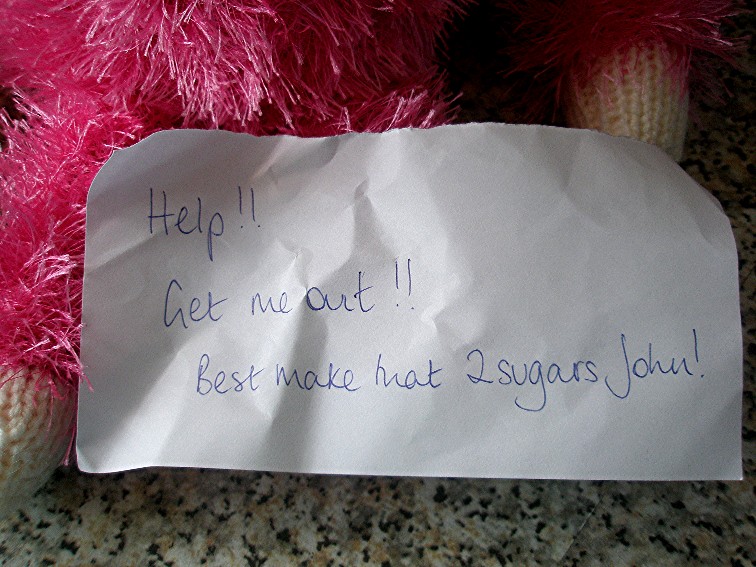 Help!!
Get me out!!
Best make that 2 sugars John!